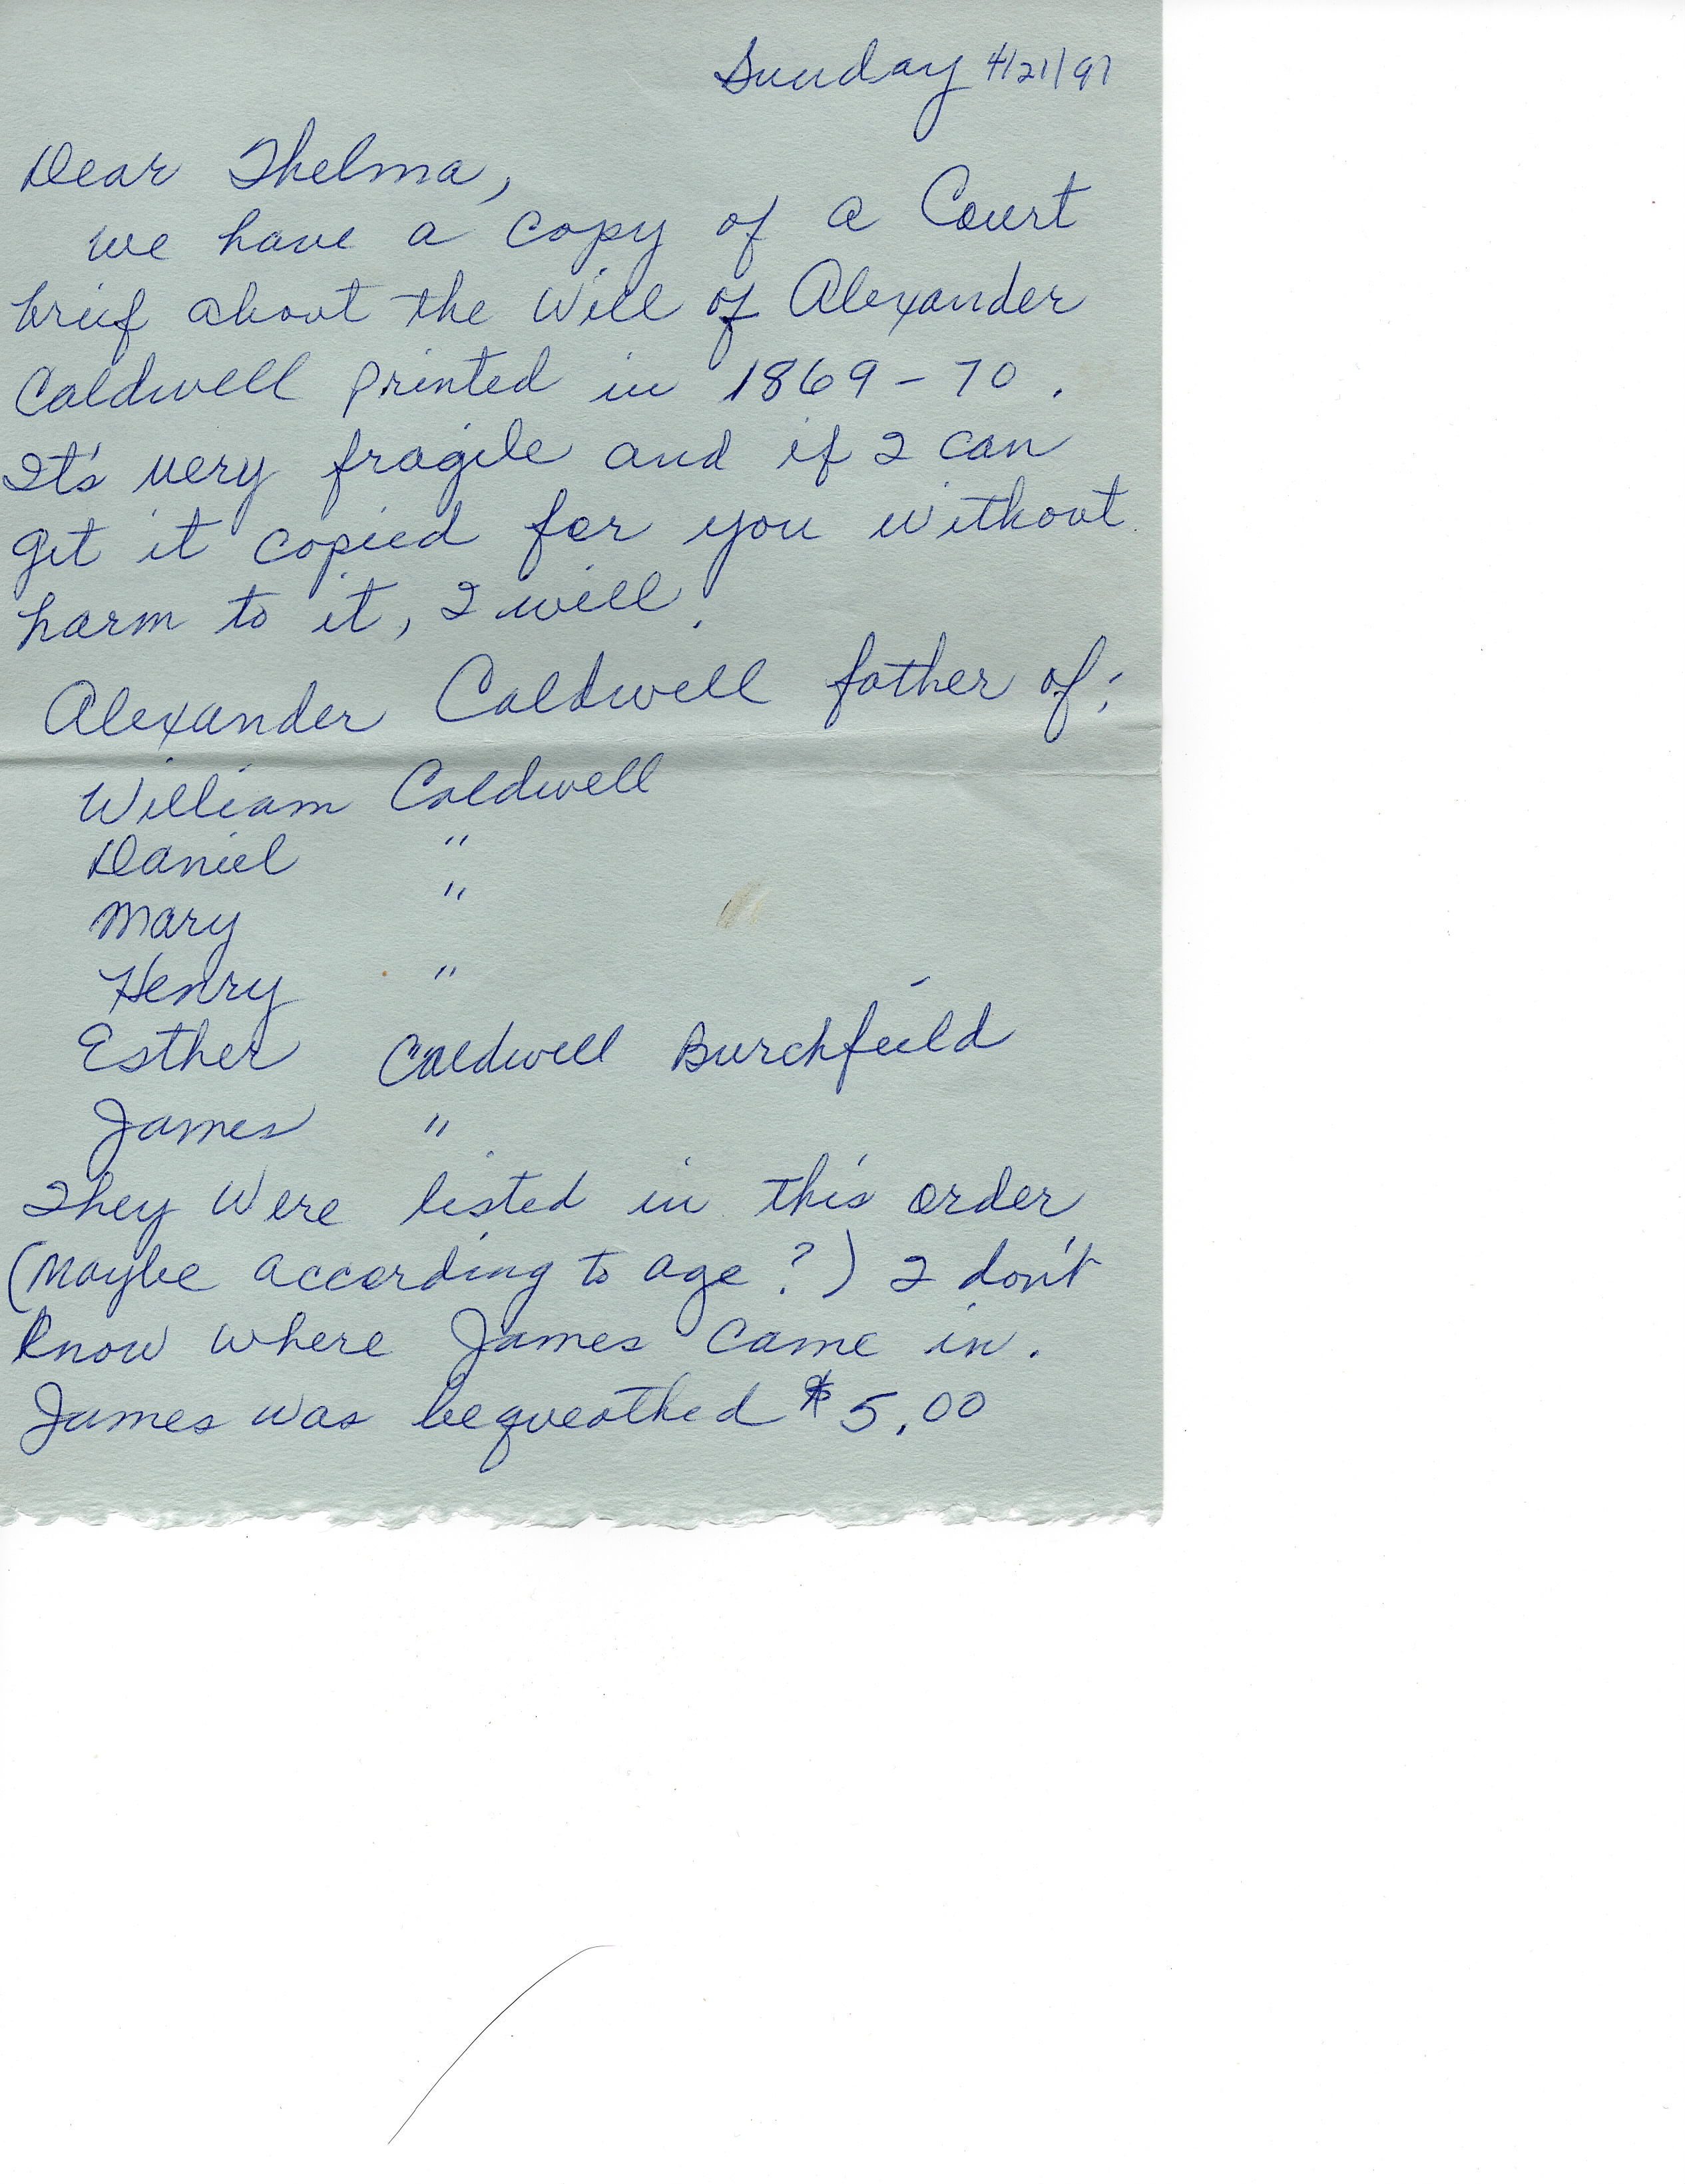 Sunday 4/21/91
Dear Thelma,
we have a copy of a Court
brief about the Will of Alexander
Caldwell printed in 1869-70.
It's very fragile and if I can
get it copied for you without
harm to it, I will.
Alexander Caldwell father of;
William Caldwell
Daniel "
Mary "
Henry "
Esther Caldwell Burchfield
James "
They were listed in this order
(Maybe according to age?) I don't
know where James came in.
James was bequeathed $5.00